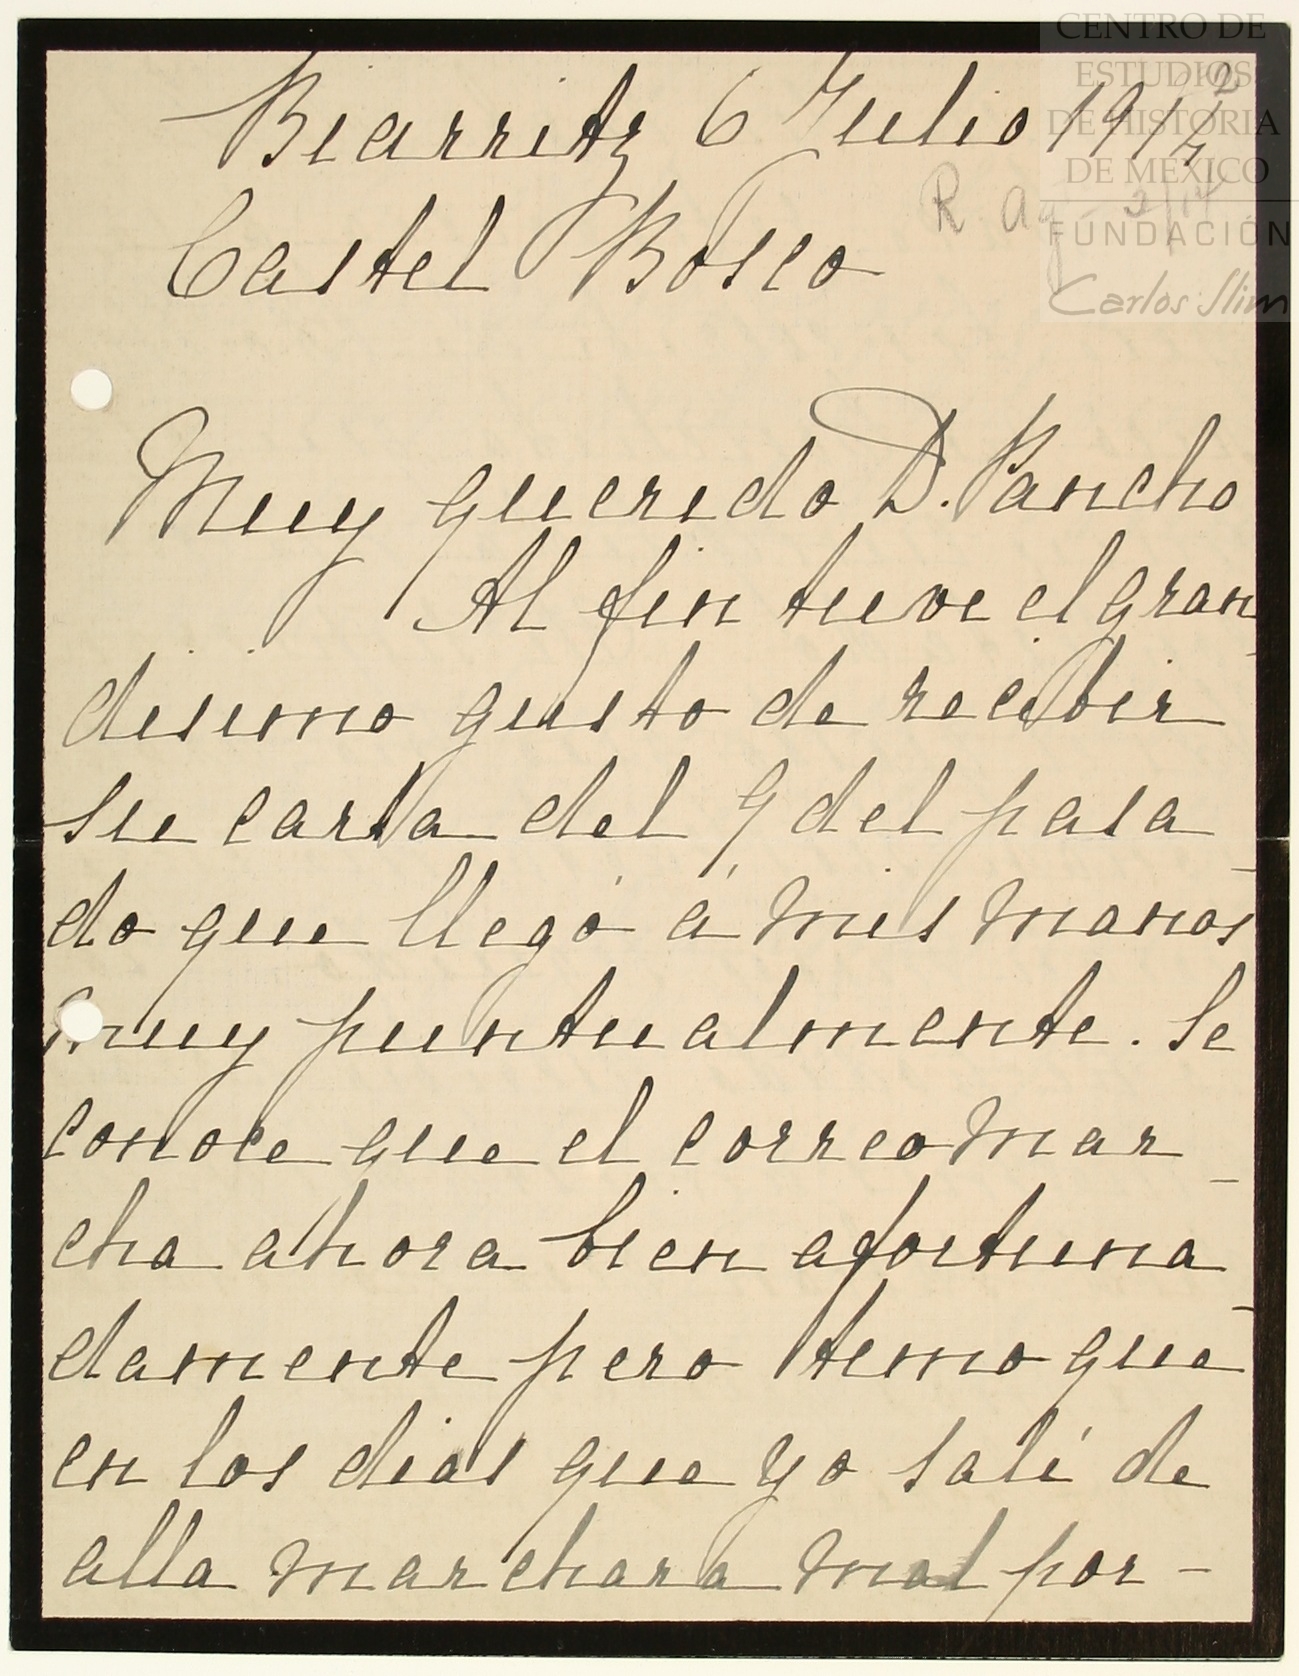 CENTRO DE
ESTUDIOS
DE HISTORIA
DE MÉXICO
FUNDACIÓN
Carlos Slim
Biarritz 6 Julio 191
Castel Bosco
R. Ag
Muy querido D. Pancho
Al fin tuve el gran
disimo gusto de recibir
su carta del 9 del pasa
do que llegó á mis manos
muy puntualmente. Se
conoce que el correo mar_
cha ahora bien afortuna_
damente pero temo que
en los dias que yo salí de
alla marchara mal por-